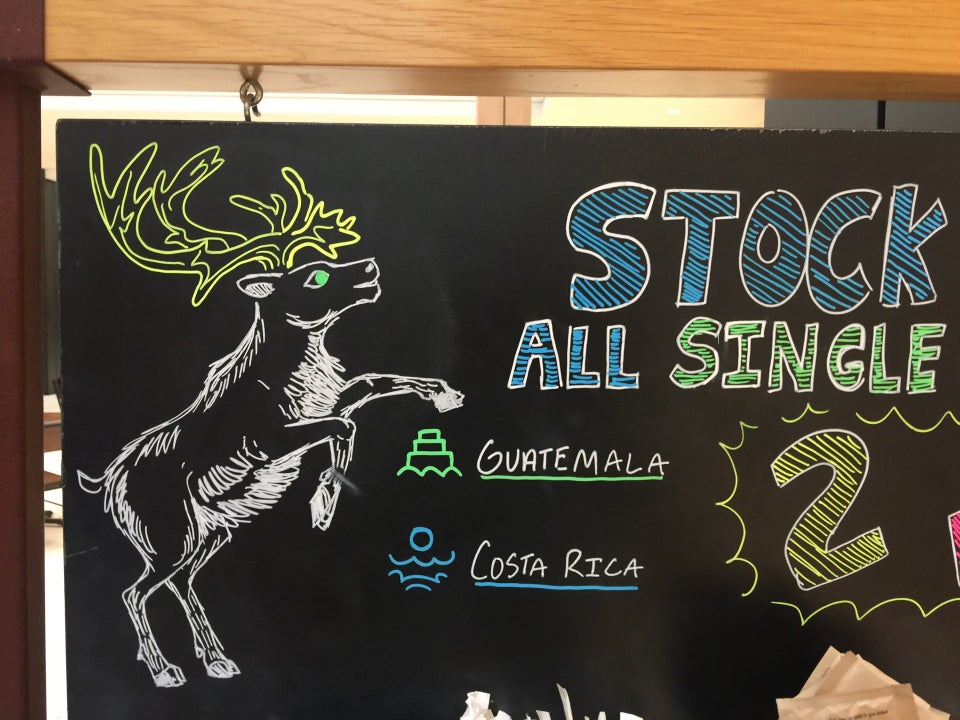 STOCK
ALL SINGLE
GUATEMALA
2
COSTA RICA